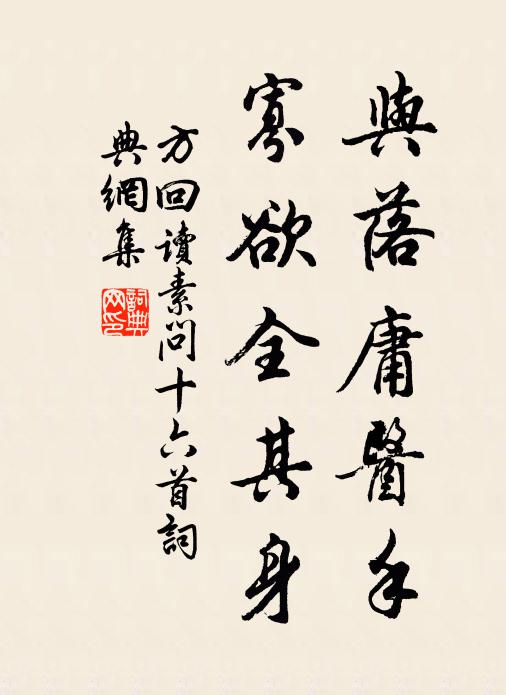 與落庸醫手
寡欲全其身
方回讀素問十六首詞
典網集
詞典網印